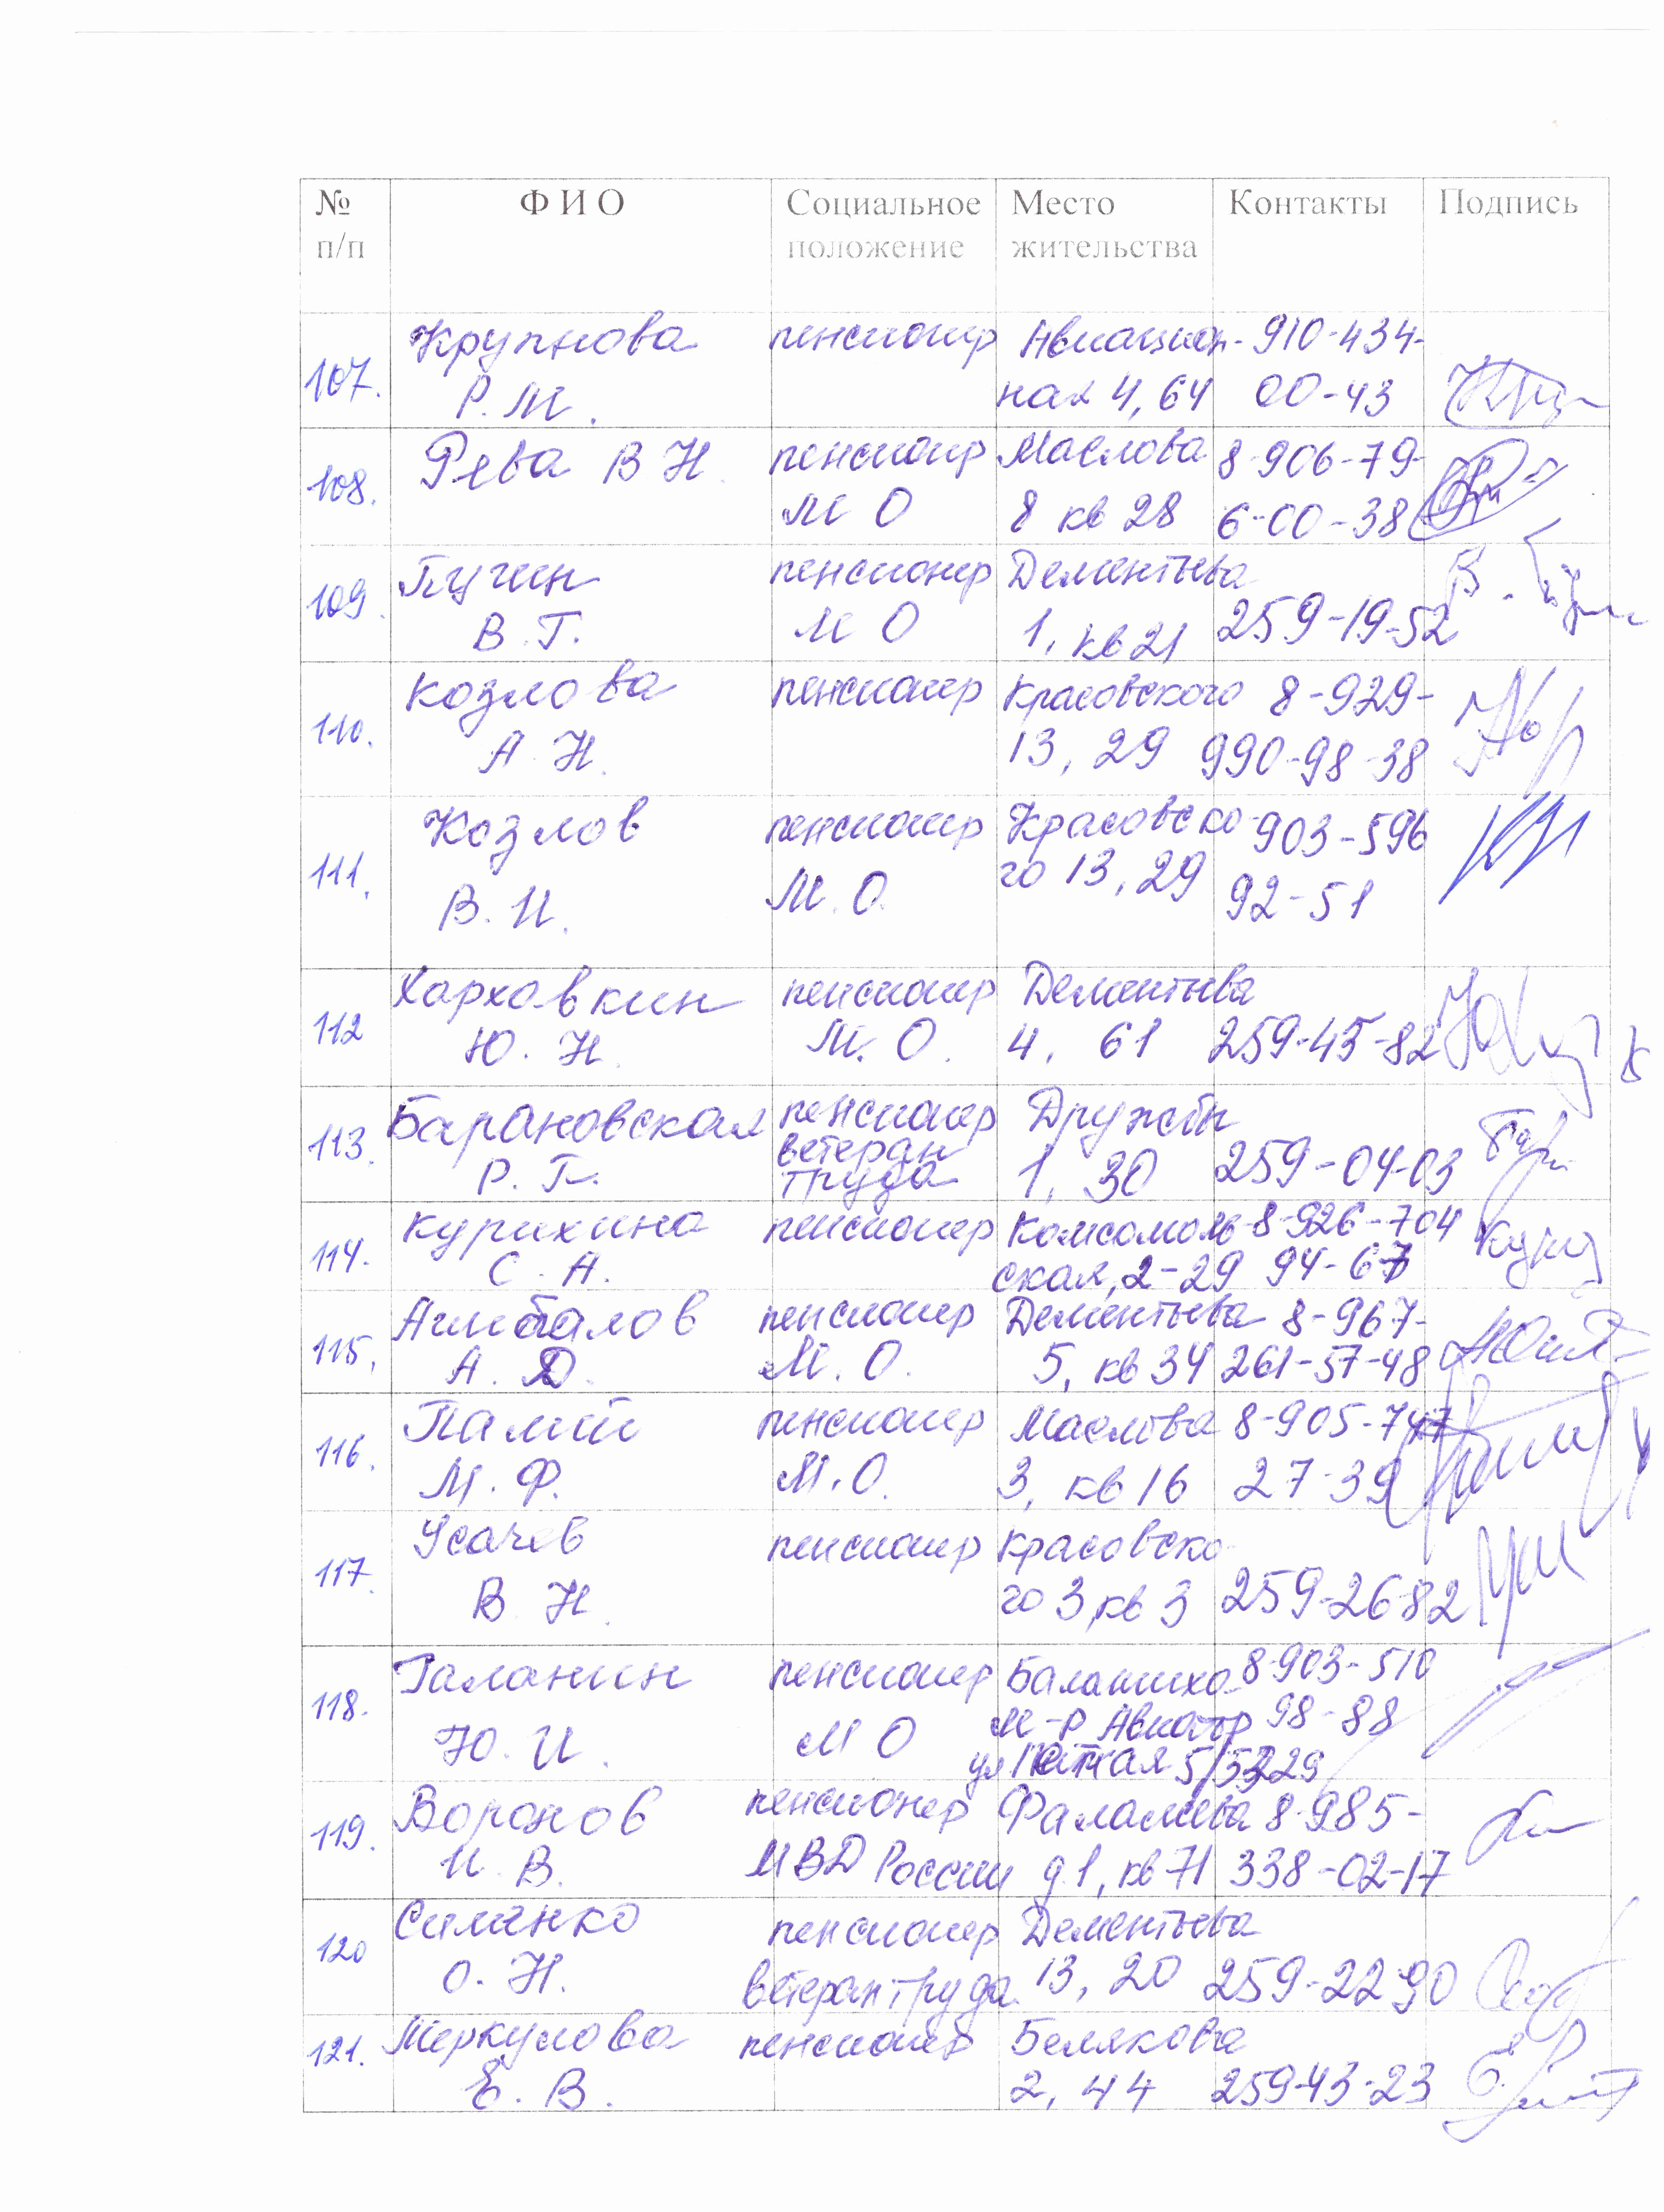 № Ф И О Социальное Место Контакты Подпись
п/п положение жительства
107. Крупнова пенсионер Авиацион- 910-434-
Р. М. ная 4, 64 00-43
108. Рева В Н пенсионер Маслова 8-906-79-
М О 8 кв 28 6-00-38
109. Пучин пенсионер Дементьева
В. Г. М О 1, кв 21 259-19-52
110. Козлова пенсионер Красовского 8-929-
А. Н. 13, 29 990-98-38
111. Козлов пенсионер Красовско- 903-596
В. И. М. О. го 13, 29 92-51
112 Харховкин пенсионер Дементьева
Ю. Н. М. О. 4, 61 259-45-82
113. Барановская пенсионер Дружбы
ветеран
Р. Г. труда 1, 30 259-04-03
114. Курихина пенсионер Комсомоль- 8-926-704
С. А. ская, 2-29 94-67
115. пенсионер Дементьева 8-967-
А. Д. М. О. 5, кв 34 261-57-48
116. Палий пенсионер Маслова 8-905-747
М. Ф. М. О. 3, кв 16 27-39
117. Усачев пенсионер Красовско
В. Н. го 3, кв 3 259-26-82
118. Галанин пенсионер Балашиха 8-903-510
Ю. И. М О м-р Авиатор 98-88
ул
119. Воронов пенсионер Фаламеева 8-985-
И. В. МВД России д. 1, кв 71 338-02-17
120 Сименко пенсионер Дементьева
О. Н. ветеран труда 13, 20 259-22-90
121. Меркулова пенсионер Белякова
Е. В. 2, 44 259-43-23